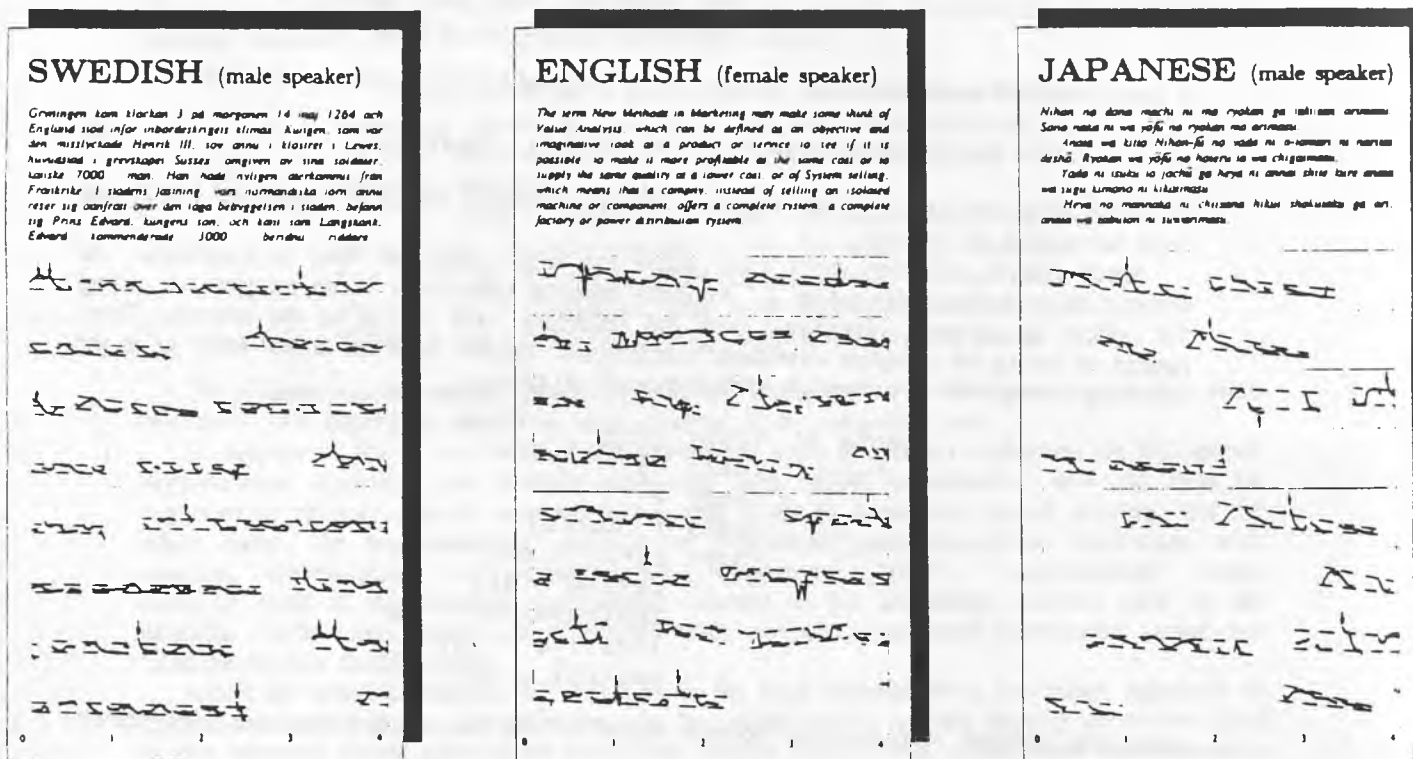 SWEDISH (male speaker)
Gryningen kom klockan 3 på morgonen 14 maj 1264 och
England stod inför inbördeskrigets klimax. Kungen, som var
den misslyckade Henrik III, sov ännu i klostret i Lewes,
i grevskapet Sussex omgiven av sina soldater,
kanske 7000 man. Han hade nyligen återkommit från
Frankrike i stadens fästning vars normandiska torn ännu
reser sig över den låga bebyggelsen i staden, befann
sig Prins Edvard, kungens son, och känd som Langshank.
Edvard kommenderade 3000 beridna riddare.
0 1 2 3 4
ENGLISH (female speaker)
The term New Methods in Marketing may make some think of
Value Analysis, which can be defined as an objective and
imaginative look at a product or service to see if it is
possible to make it more profitable at the same cost or to
supply the same quality at a lower cost, or of System selling,
which means that a company, instead of selling an isolated
machine or component, offers a complete system, a complete
factory or power distribution system.
0 1 2 3 4
JAPANESE (male speaker)
Nihon no dono machi ni mo ryokan ga takusan arimasu.
Sono naka ni wa yōfū no ryokan mo arimasu.
Anata wa kitto Nihon-fū no yado ni o-tomari ni naritai
deshō. Ryokan wa yōfū no hoteru to wa chigaimasu.
Yado ni tsuku to jochū ga heya ni annai shite kure anata
wa sugu kimono ni kikaemasu.
Heya no mannaka ni chiisana hikui shokutaku ga ari,
anata wa zabuton ni suwarimasu.
0 1 2 3 4